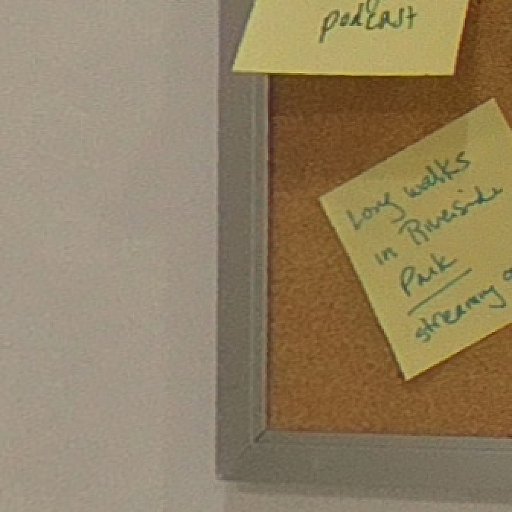 podcast
Long walks
in Riverside
Park
streaming